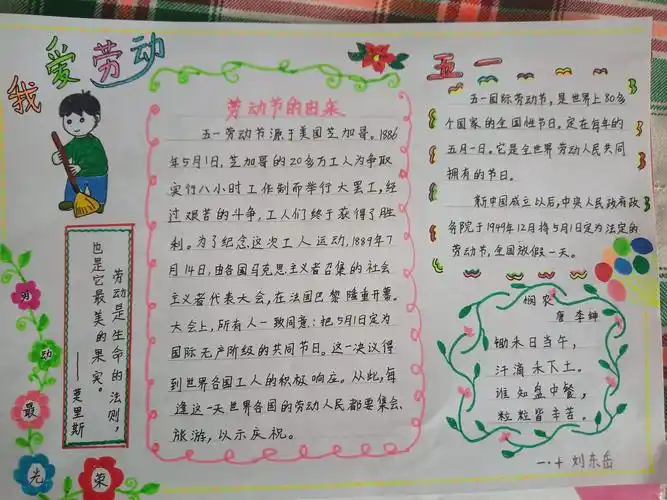 我爱劳动
劳动节的由来
五一劳动节源于美国芝加哥。1886
年5月1日,芝加哥的20多万工人为争取
实行八小时工作制而举行大罢工,经
过艰苦的斗争,工人们终于获得了胜
利。为了纪念这次工人运动,1889年7
月14日,由各国马克思主义者召集的社会
主义者代表大会,在法国巴黎隆重开幕。
大会上,所有人一致同意:把5月1日定为
国际无产阶级的共同节日。这一决议得
到世界各国工人的积极响应。从此,每
逢这一天世界各国的劳动人民都要集会、
旅游,以示庆祝。
五一
五一国际劳动节,是世界上80多
个国家的全国性节日。定在每年的
五月一日。它是全世界劳动人民共同
拥有的节日。
新中国成立以后,中央人民政府政
务院于1949年12月将5月1日定为法定的
劳动节,全国放假一天。
劳动是生命的法则,
也是它最美的果实。
——莫里斯
悯农
唐 李绅
锄禾日当午,
汗滴禾下土。
谁知盘中餐,
粒粒皆辛苦。
劳动最光荣
一·十 刘东岳